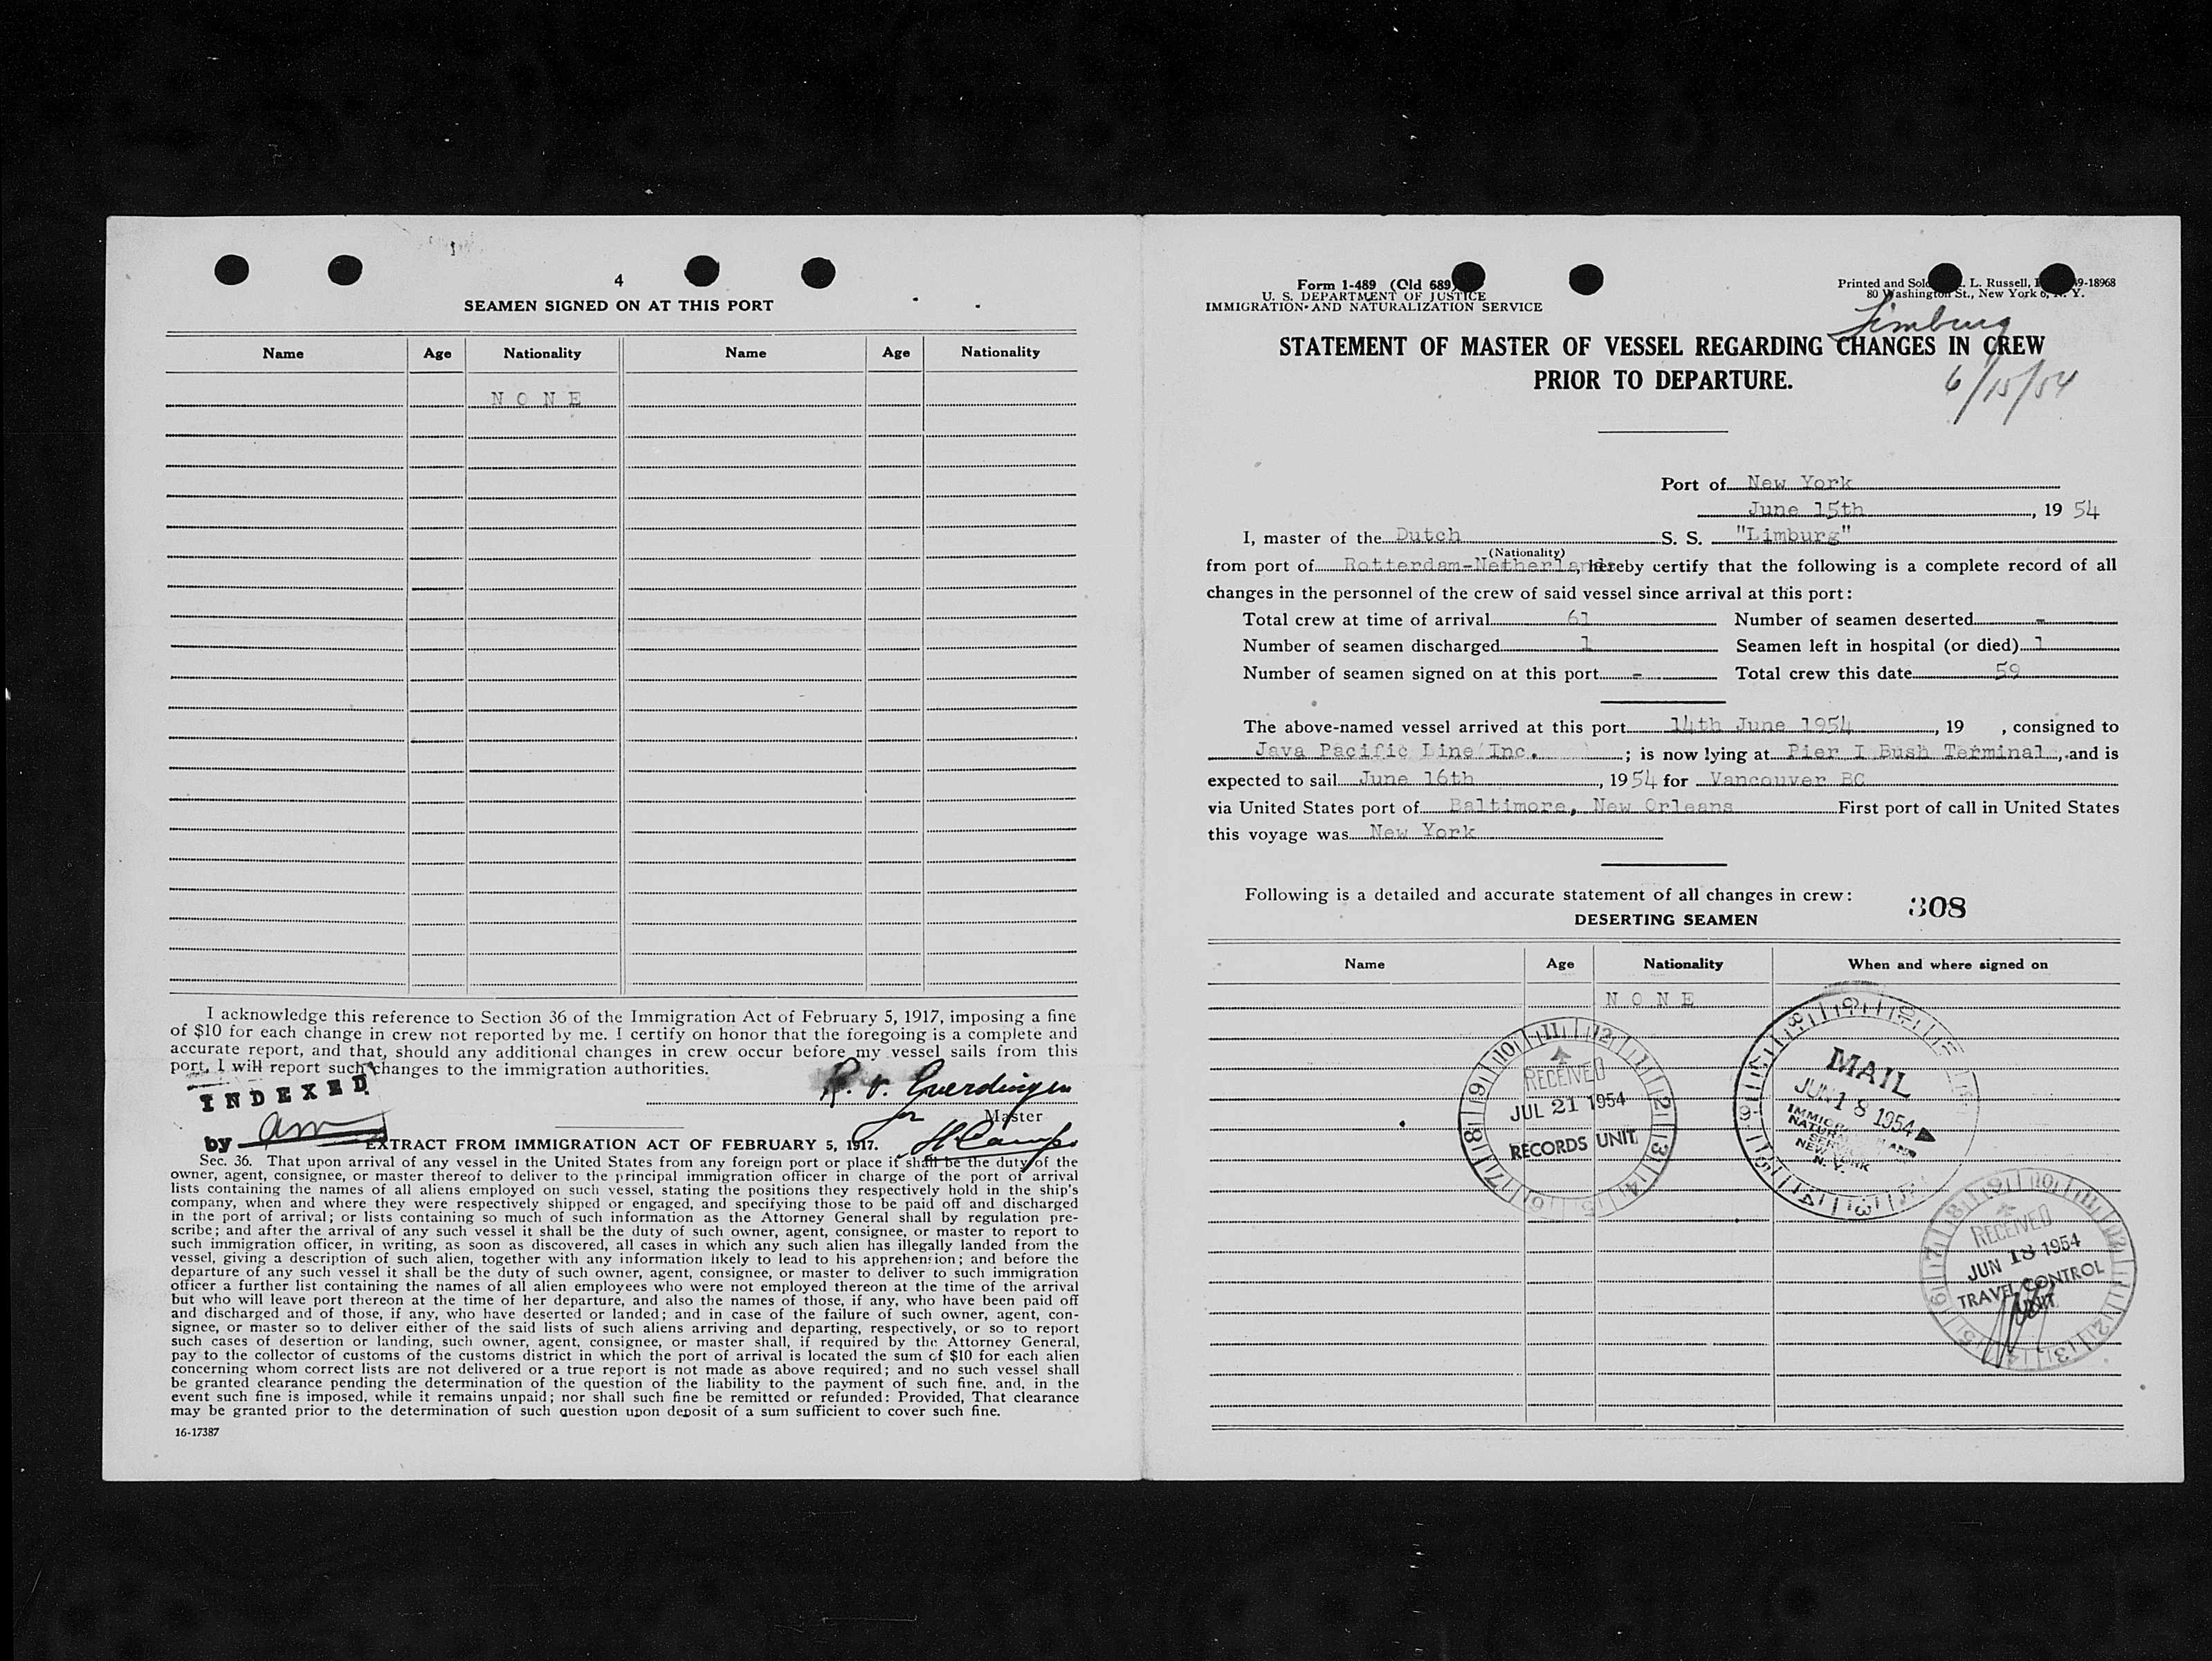 4
SEAMEN SIGNED ON AT THIS PORT
Name Age Nationality Name Age Nationality
N O N E
I acknowledge this reference to Section 36 of the Immigration Act of February 5, 1917, imposing a fine
of $10 for each change in crew not reported by me. I certify on honor that the foregoing is a complete and
accurate report, and that, should any additional changes in crew occur before my vessel sails from this
port, I will report such changes to the immigration authorities.
INDEXED
by am
R. v. Everdingen
for Master
EXTRACT FROM IMMIGRATION ACT OF FEBRUARY 5, 1917.
Sec. 36. That upon arrival of any vessel in the United States from any foreign port or place it shall be the duty of the
owner, agent, consignee, or master thereof to deliver to the principal immigration officer in charge of the port of arrival
lists containing the names of all aliens employed on such vessel, stating the positions they respectively hold in the ship's
company, when and where they were respectively shipped or engaged, and specifying those to be paid off and discharged
in the port of arrival; or lists containing so much of such information as the Attorney General shall by regulation pre-
scribe; and after the arrival of any such vessel it shall be the duty of such owner, agent, consignee, or master to report to
such immigration officer, in writing, as soon as discovered, all cases in which any such alien has illegally landed from the
vessel, giving a description of such alien, together with any information likely to lead to his apprehension; and before the
departure of any such vessel it shall be the duty of such owner, agent, consignee, or master to deliver to such immigration
officer a further list containing the names of all alien employees who were not employed thereon at the time of the arrival
but who will leave port thereon at the time of her departure, and also the names of those, if any, who have been paid off
and discharged and of those, if any, who have deserted or landed; and in case of the failure of such owner, agent, con-
signee, or master so to deliver either of the said lists of such aliens arriving and departing, respectively, or so to report
such cases of desertion or landing, such owner, agent, consignee, or master shall, if required by the Attorney General,
pay to the collector of customs of the customs district in which the port of arrival is located the sum of $10 for each alien
concerning whom correct lists are not delivered or a true report is not made as above required; and no such vessel shall
be granted clearance pending the determination of the question of the liability to the payment of such fine, and, in the
event such fine is imposed, while it remains unpaid; nor shall such fine be remitted or refunded: Provided, That clearance
may be granted prior to the determination of such question upon deposit of a sum sufficient to cover such fine.
16-17387
Form 1-489 (Old 689)
U. S. DEPARTMENT OF JUSTICE
IMMIGRATION AND NATURALIZATION SERVICE
Printed and Sold L. Russell, 9-18968
80 Washington St., New York 6, N. Y.
Limburg
STATEMENT OF MASTER OF VESSEL REGARDING CHANGES IN CREW
PRIOR TO DEPARTURE.
6/15/54
Port of New York
June 15th, 19 54
I, master of the Dutch S. S. "Limburg"
(Nationality)
from port of Rotterdam-Netherlands, hereby certify that the following is a complete record of all
changes in the personnel of the crew of said vessel since arrival at this port:
Total crew at time of arrival 61 Number of seamen deserted -
Number of seamen discharged 1 Seamen left in hospital (or died) 1
Number of seamen signed on at this port - Total crew this date 59
The above-named vessel arrived at this port 14th June 1954, 19 , consigned to
Java Pacific Line Inc. ; is now lying at Pier I Bush Terminal, and is
expected to sail June 16th, 1954 for Vancouver BC
via United States port of Baltimore, New Orleans First port of call in United States
this voyage was New York
Following is a detailed and accurate statement of all changes in crew:
308
DESERTING SEAMEN
Name Age Nationality When and where signed on
N O N E
RECEIVED
JUL 21 1954
RECORDS UNIT
MAIL
JUN 18 1954
IMMIGRATION AND
NATURALIZATION
SERVICE
NEW YORK
N. Y.
RECEIVED
JUN 18 1954
TRAVEL CONTROL
UNIT